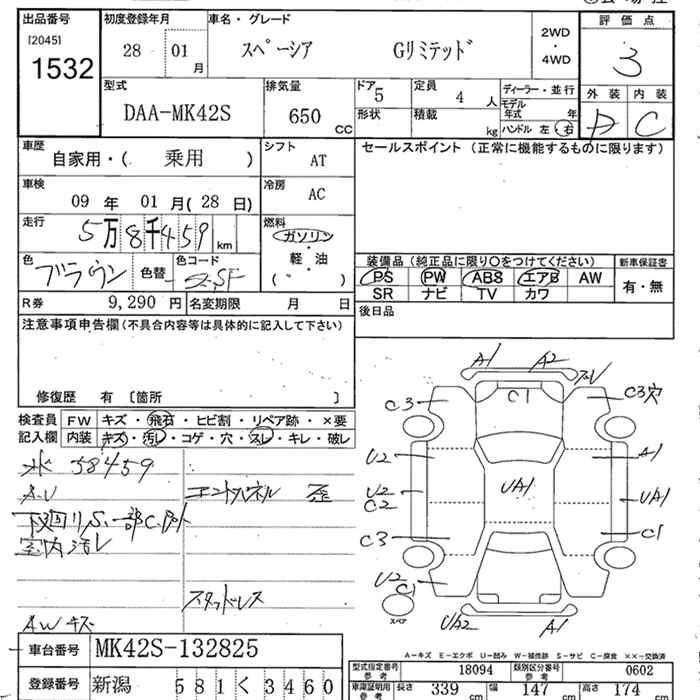 出品番号 初度登録年月 車名・グレード 評価点
[2045] 1532 28 01 月 スペーシア Gリミテッド 2WD・4WD 3
型式 排気量 ドア 定員 ディーラー・並行 外装 内装
DAA-MK42S 650 CC 5 4 人 モデル年式 年 C
形状 積載 kg ハンドル 左・右
車歴 シフト セールスポイント (正常に機能するものに限ります)
自家用・( 乗用 ) AT
車検 冷房
09 年 01 月( 28 日) AC
走行 燃料
5万8千459 km ガソリン・軽・油 ( )
装備品(純正品に限り○をつけてください) 新車保証書
色 ブラウン 色替 色コード
PS PW ABS エアB AW 有・無
SR ナビ TV カワ
R券 9,290 円 名変期限 月 日 後日品
注意事項申告欄(不具合内容等は具体的に記入して下さい)
修復歴 有 [箇所 ]
検査員記入欄 FW キズ・飛石・ヒビ割・リペア跡・×要
内装 キズ・汚レ・コゲ・穴・スレ・キレ・破レ
58459
室内汚レ
スタッドレス
AWキズ
A1 A2
C3 C1 C3穴
U2 A1
U2 C2 UA1 UA1
C3 C1
U2 C1
スペア UA2 A1
A-キズ E-エクボ U-凹み W-補修跡 S-サビ C-腐食 ××-交換済
車台番号 MK42S-132825
登録番号 新潟 581 く 3460
型式指定番号 参考 18094 類別区分番号 参考 0602
車庫証明用 参考 長さ 339 cm 幅 147 cm 高さ 174 cm